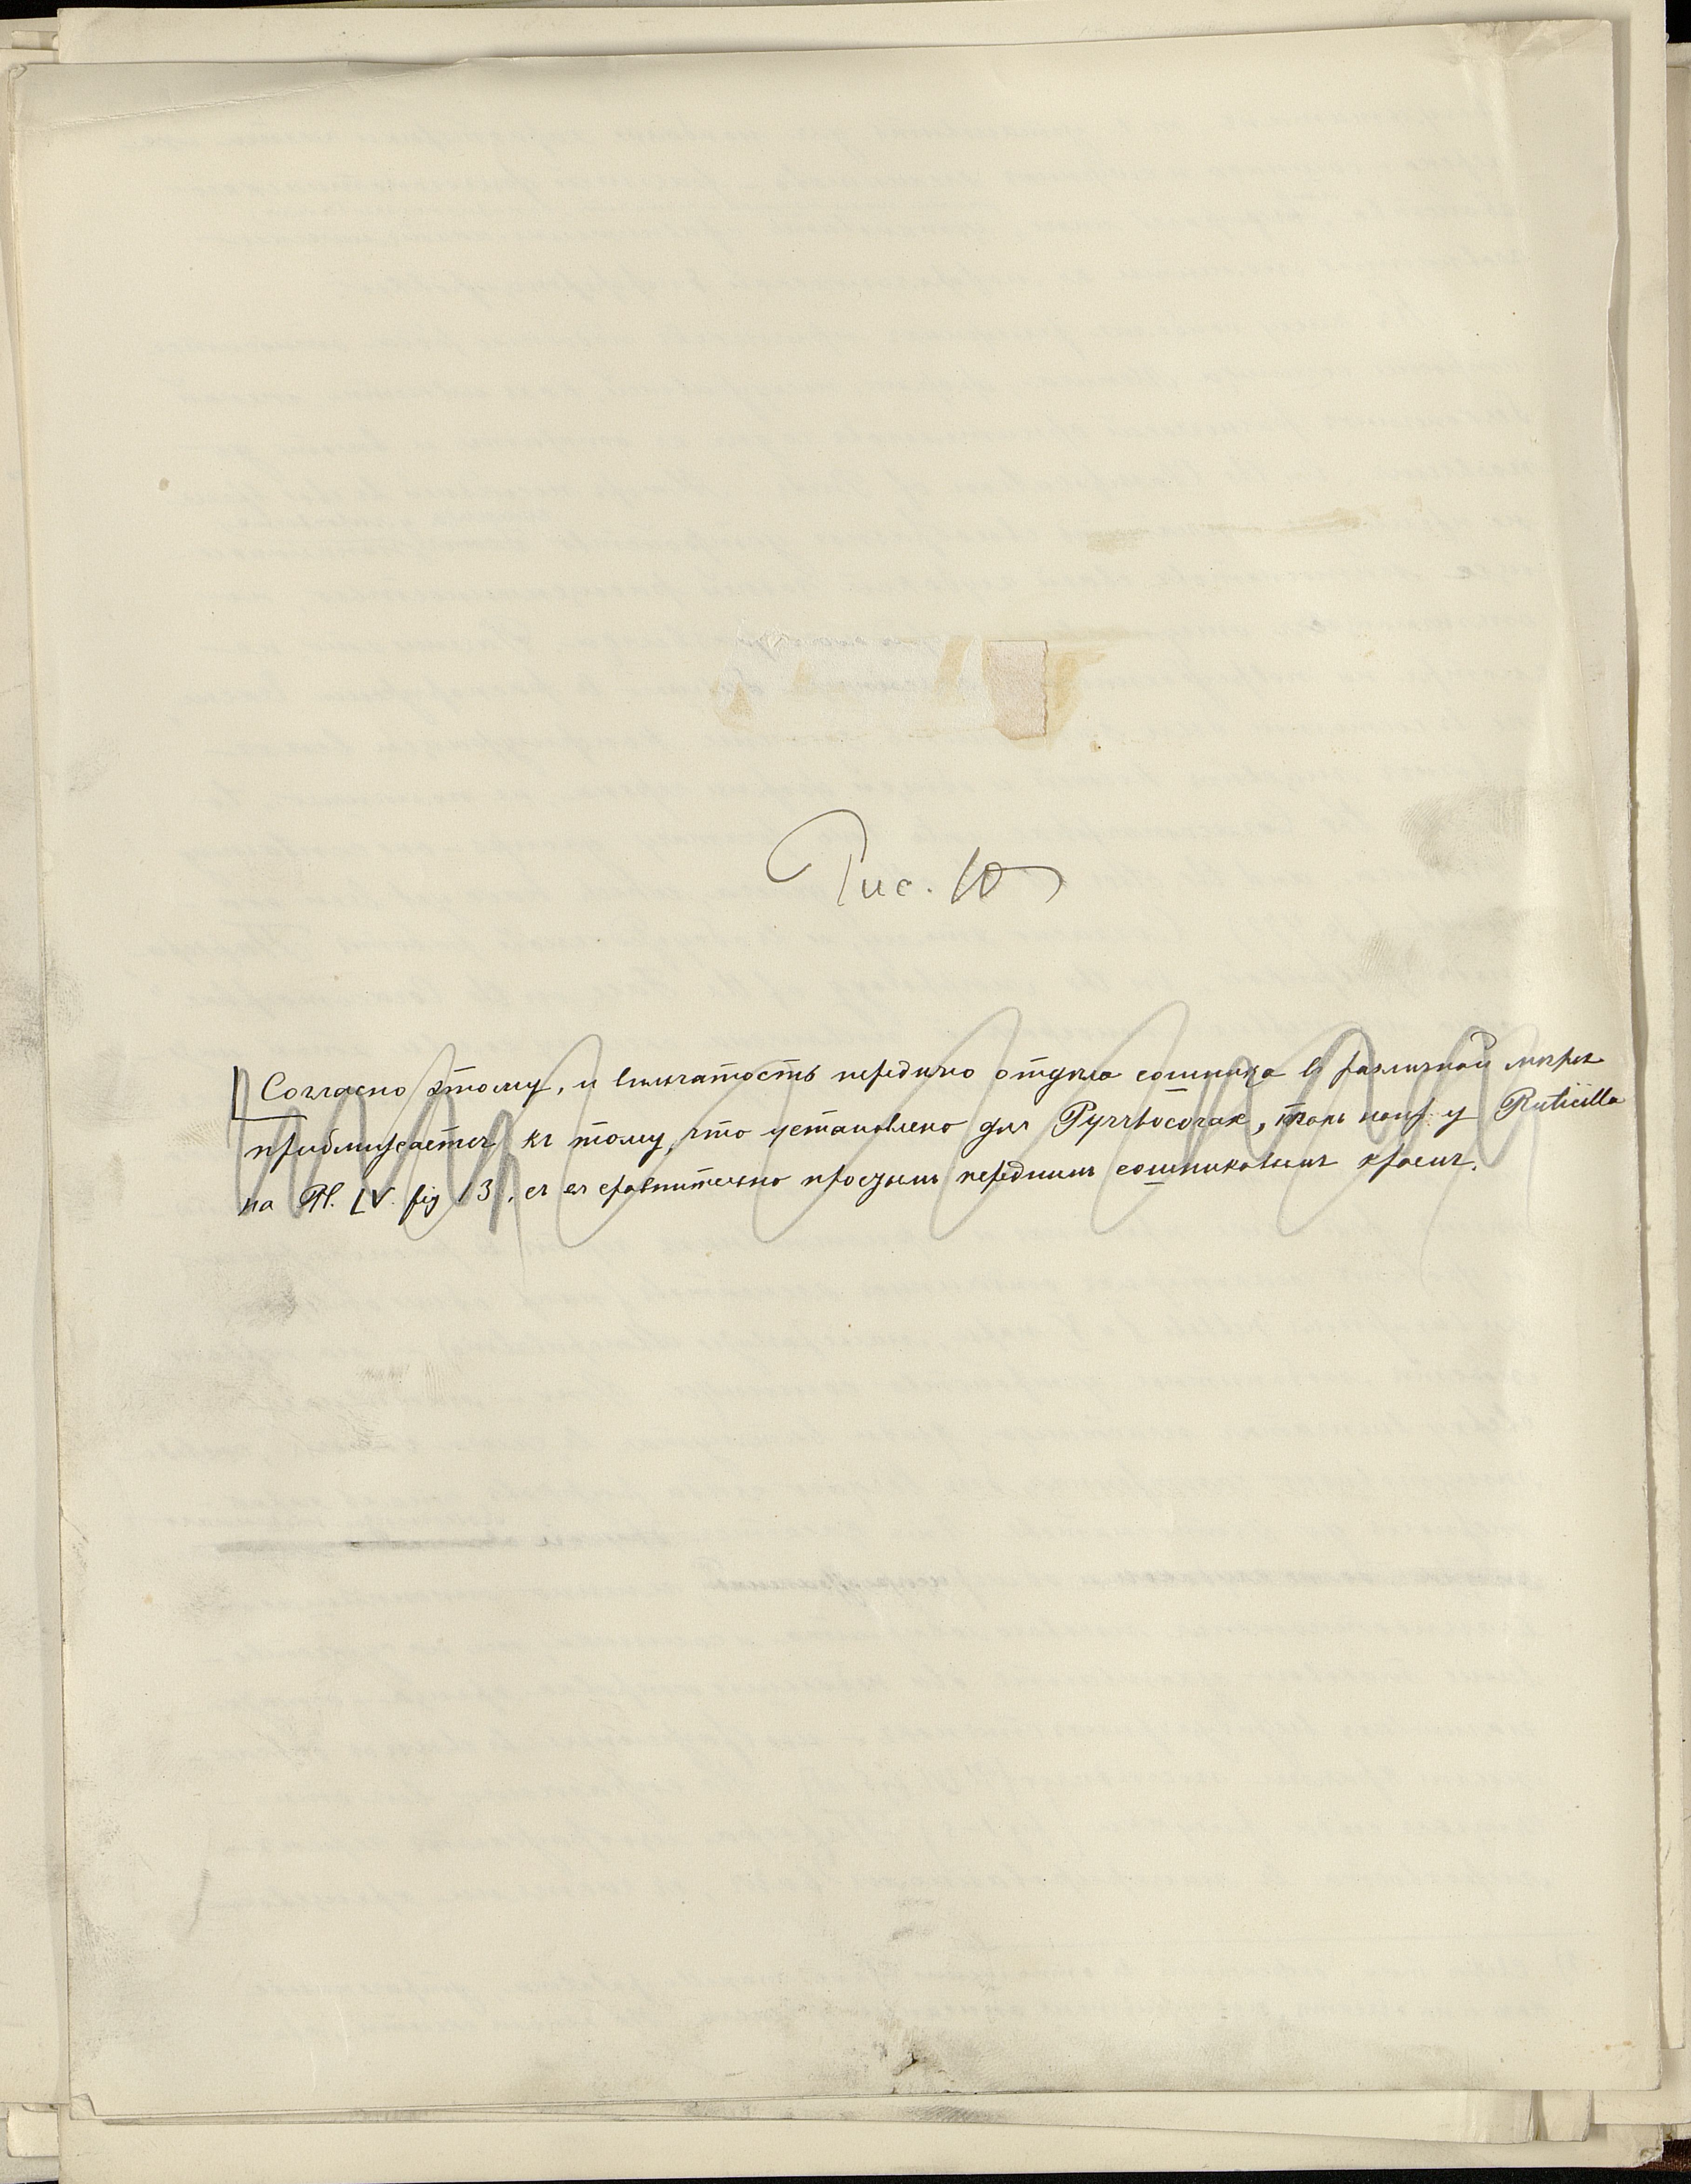 Рис. 10
Согласно этому, и вильчатость переднего отдѣла сошника в различной мѣрѣ
приближается къ тому, что установлено для Pyrrhocorax, какъ напр. у Ruticilla
на Pl. LV. fig 13, съ ея сравнительно прозднымъ переднимъ сошниковымъ краемъ.